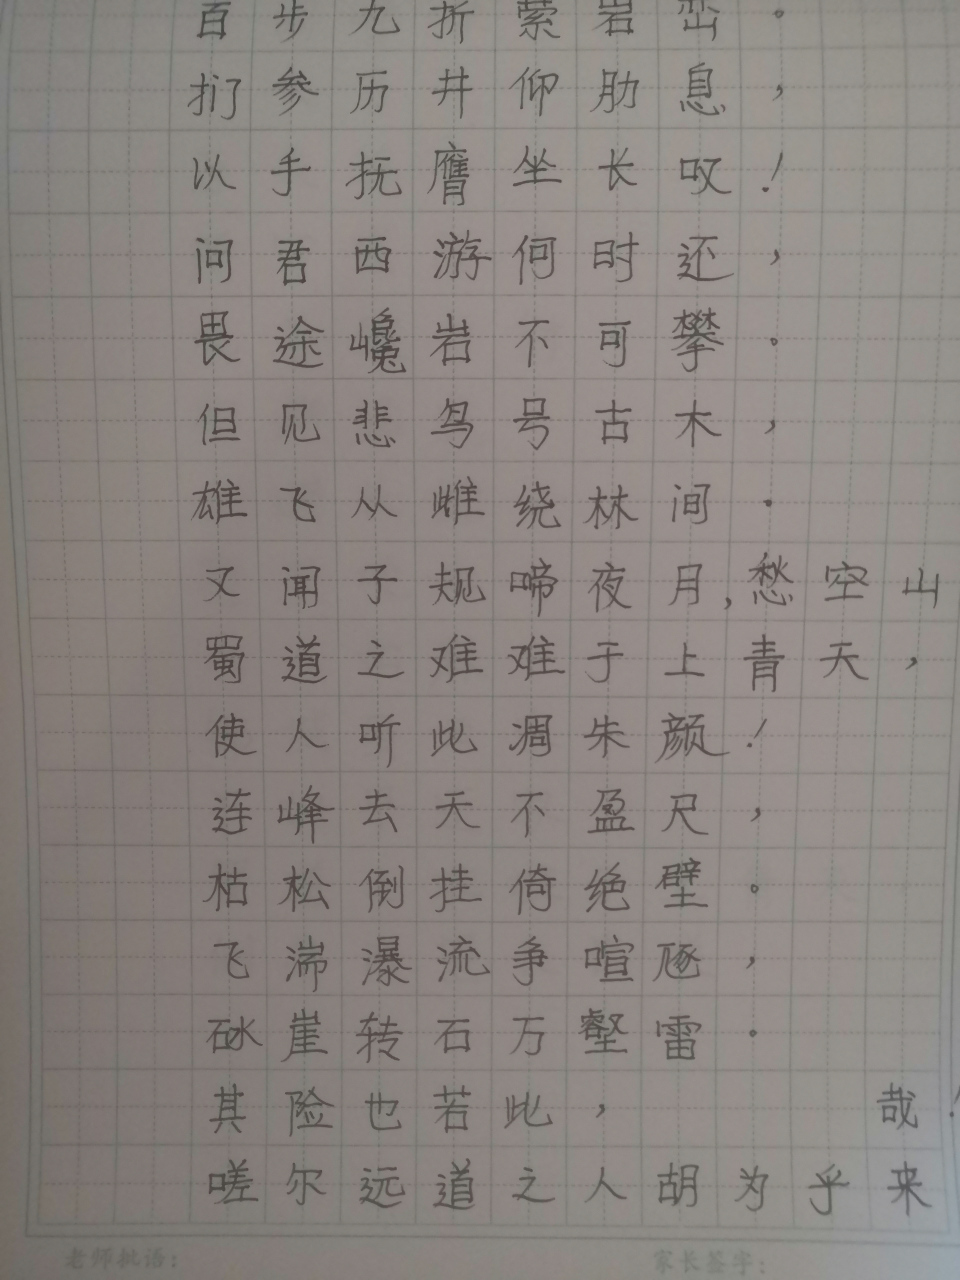 百步九折萦岩峦。
扪参历井仰肋息，
以手抚膺坐长叹！
问君西游何时还，
畏途巉岩不可攀。
但见悲鸟号古木，
雄飞从雌绕林间。
又闻子规啼夜月,愁空山
蜀道之难难于上青天，
使人听此凋朱颜！
连峰去天不盈尺，
枯松倒挂倚绝壁。
飞湍瀑流争喧豗，
砯崖转石万壑雷。
其险也若此，哉！
嗟尔远道之人胡为乎来
老师批语：
家长签字：